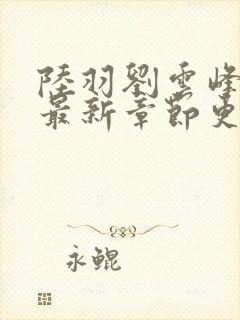 陸羽劉雲峰
最新章節更
永鯤